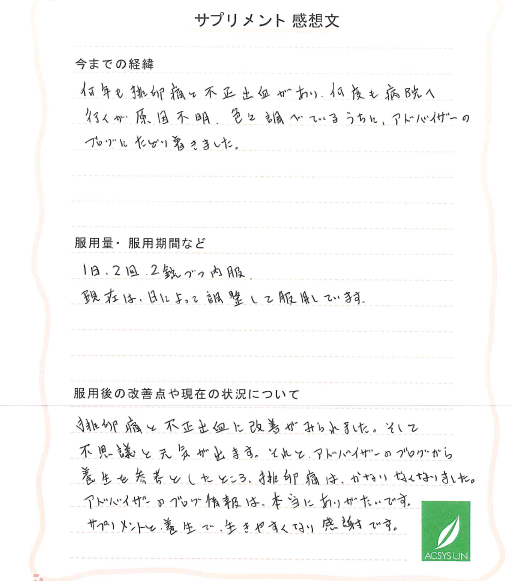 サプリメント 感想文
今までの経緯
何年も排卵痛と不正出血があり、何度も病院へ
行くが原因不明。色々調べているうちに、アドバイザーの
ブログにたどり着きました。
服用量・服用期間など
1日、2回、2錠づつ内服。
現在は、日によって調整して服用しています。
服用後の改善点や現在の状況について
排卵痛と不正出血に改善がみられました。そして
不思議と元気が出ます。それと、アドバイザーのブログから
養生を参考としたところ、排卵痛は、かなりなくなりました。
アドバイザーのブログ情報は、本当にありがたいです。
サプリメントと養生で、生きやすくなり感謝です。
ACSYS.UN